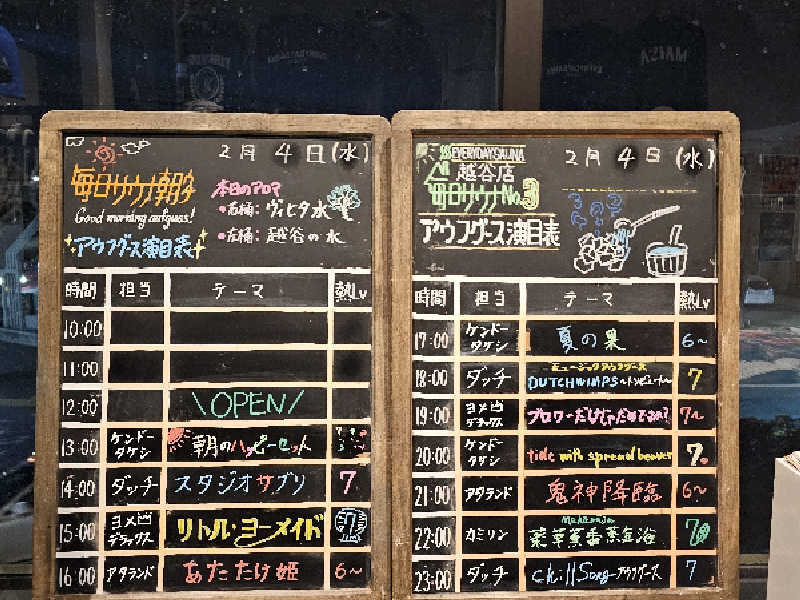 2月 4日(水)
毎日サウナ朝夕
Good morning aufguss!
アウフグース演目表
本日のアロマ
●右桶: ヴィヒタ水
●左桶: 越谷の水
時間 担当 テーマ 熱Lv
10:00
11:00
12:00 \OPEN/
13:00 ケンドータケシ 朝のハッピーセット
14:00 ダッチ スタジオサブリ 7
15:00 ヨメ凶デラックス リトル・ヨーメイド
16:00 アタランド あたたけ姫 6~
EVERYDAY SAUNA
越谷店
2月 4日(水)
毎日サウナ No.3
アウフグース演目表
時間 担当 テーマ 熱Lv
17:00 ケンドータケシ 夏の果 6~
18:00 ダッチ ミュージックアウフグース
DUTCHWIMPS 7
19:00 ヨメ凶デラックス ブロワーだけじゃだめですか? 7~
20:00 ケンドータケシ tide with spread beaver 7.
21:00 アタランド 鬼神降臨 6~
22:00 カミリン 薬草薫香蒸気浴 7
23:00 ダッチ chill Song アウフグース 7